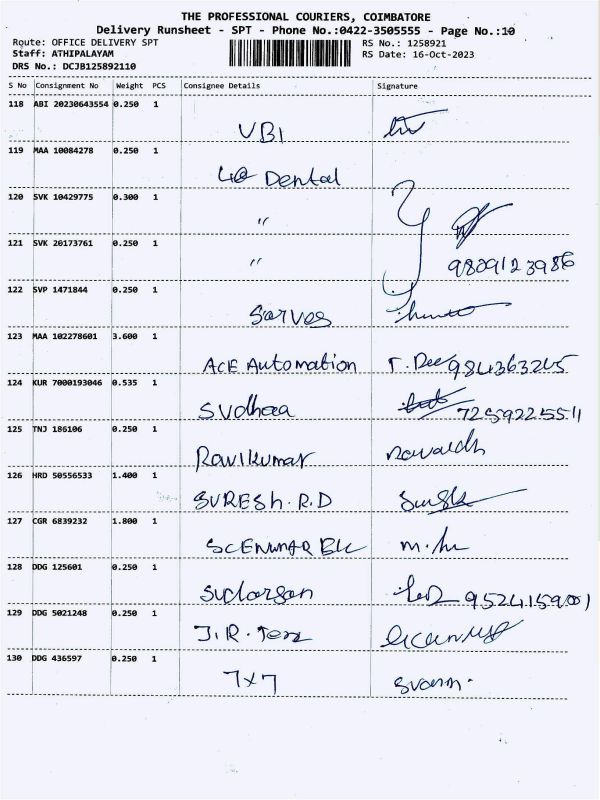 THE PROFESSIONAL COURIERS, COIMBATORE
Delivery Runsheet - SPT - Phone No.:0422-3505555 - Page No.:10
Route: OFFICE DELIVERY SPT RS No.: 1258921
Staff: ATHIPALAYAM RS Date: 16-Oct-2023
DRS No.: DCJB125892110
S No Consignment No Weight PCS Consignee Details Signature
118 ABI 20230643554 0.250 1
VBI
119 MAA 10084278 0.250 1
Dental
120 SVK 10429775 0.300 1
"
121 SVK 20173761 0.250 1
" 9809123986
122 SVP 1471844 0.250 1
Sarves
123 MAA 102278601 3.600 1
ACE Automation
124 KUR 7000193046 0.535 1
Sudhaa
125 TNJ 186106 0.250 1
Ravikumar
126 HRD 50556533 1.400 1
SURESH.R.D
127 CGR 6839232 1.800 1
128 DDG 125601 0.250 1
129 DDG 5021248 0.250 1
J.R.
130 DDG 436597 0.250 1
7x7